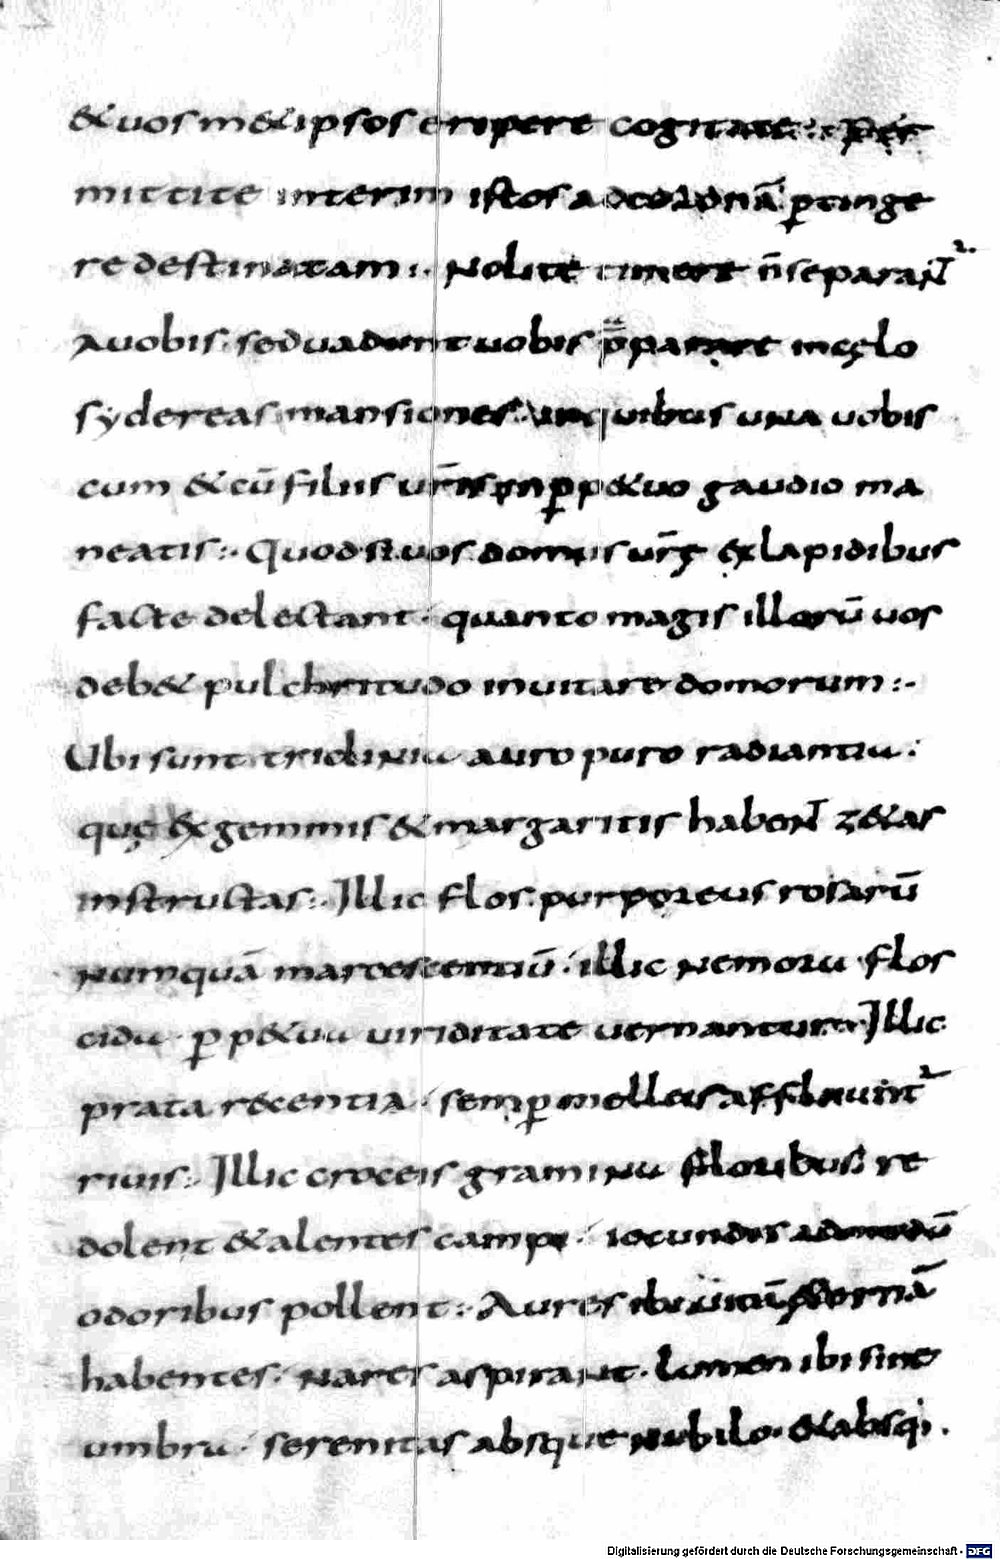 & uos m&ipsos eripere cogitate :· Per
mittite interim istos ad coronā ꝑtinge
re destinatam :· Nolite timere n̄ separaNT᷑
A uobis · sed uadunt uobis p̄parare in cęlo
sydereas mansiones · In quibus una uobis
cum & cū filiis ur̄is in ꝑp&uo gaudio ma
neatis :· Quod si uos domus ur̄ę ex lapidibus
facte delectant · quanto magis illorū uos
deb& pulchritudo inuitare domorum :·
Ubi sunt triclinia auro puro radiantia ·
quę ex gemmis & margaritis habeNT z&as
instructas :· Illic flos purporeus rosarū
Numquā marcescentiū · illic Nemora flos
cida ꝑp&ua uiriditate uernantur · Illic
prata recentia · semꝑ melleis affluunt᷑
riuis :· Illic croceis gramina floribus re
dolent & alentes campi · iocundis admodū
odoribus pollent :· Aures ibi uitā &ernā
habentes · Nares aspirant · Lumen ibi sine
umbra · serenitas absque Nubilo · & absq; ·
Digitalisierung gefördert durch die Deutsche Forschungsgemeinschaft - DFG